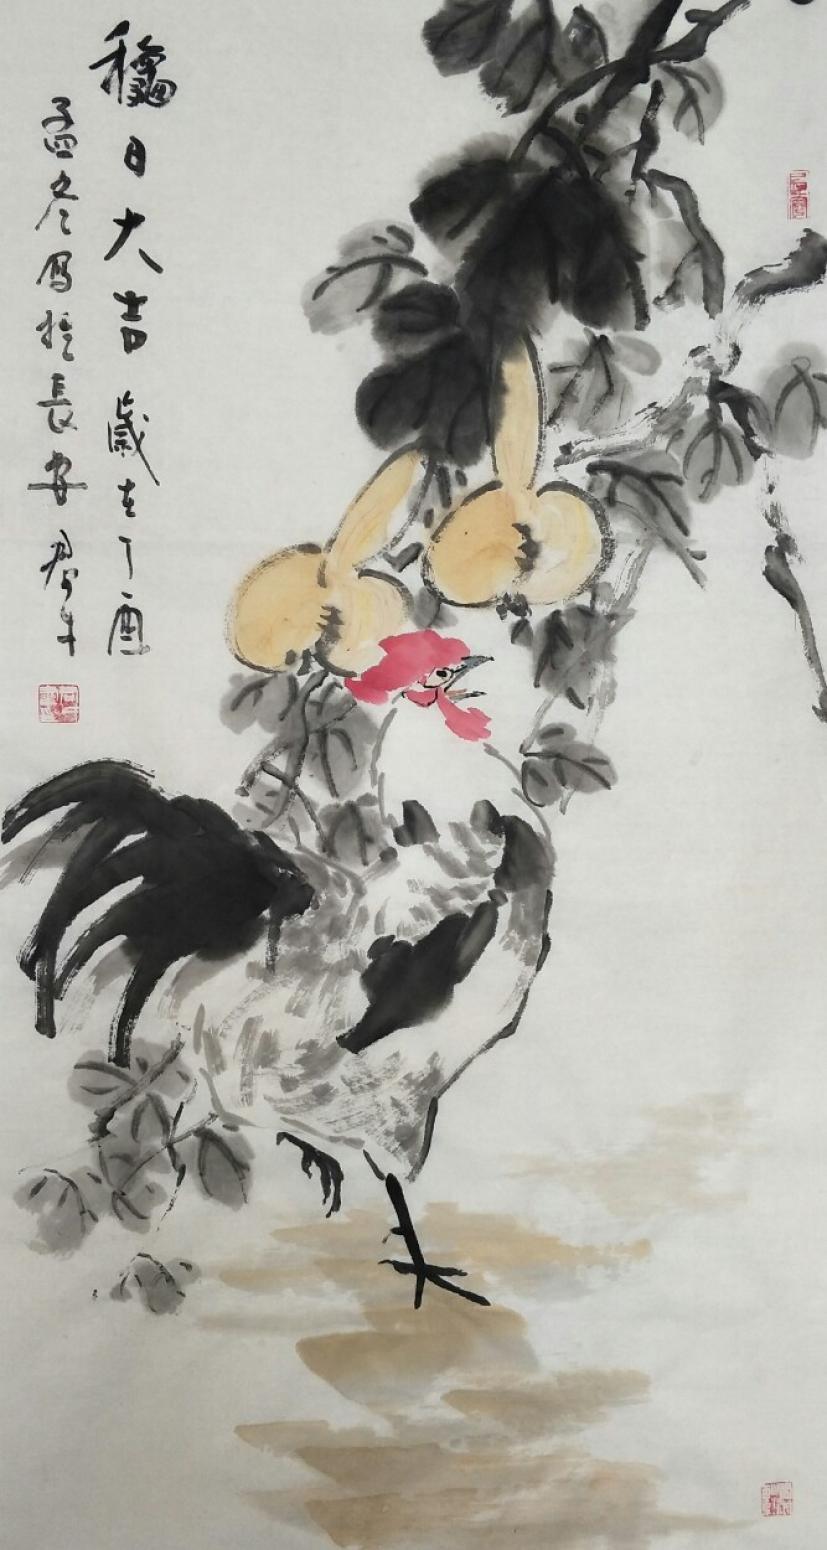 龝日大吉 歲在丁酉
孟冬寫於長安